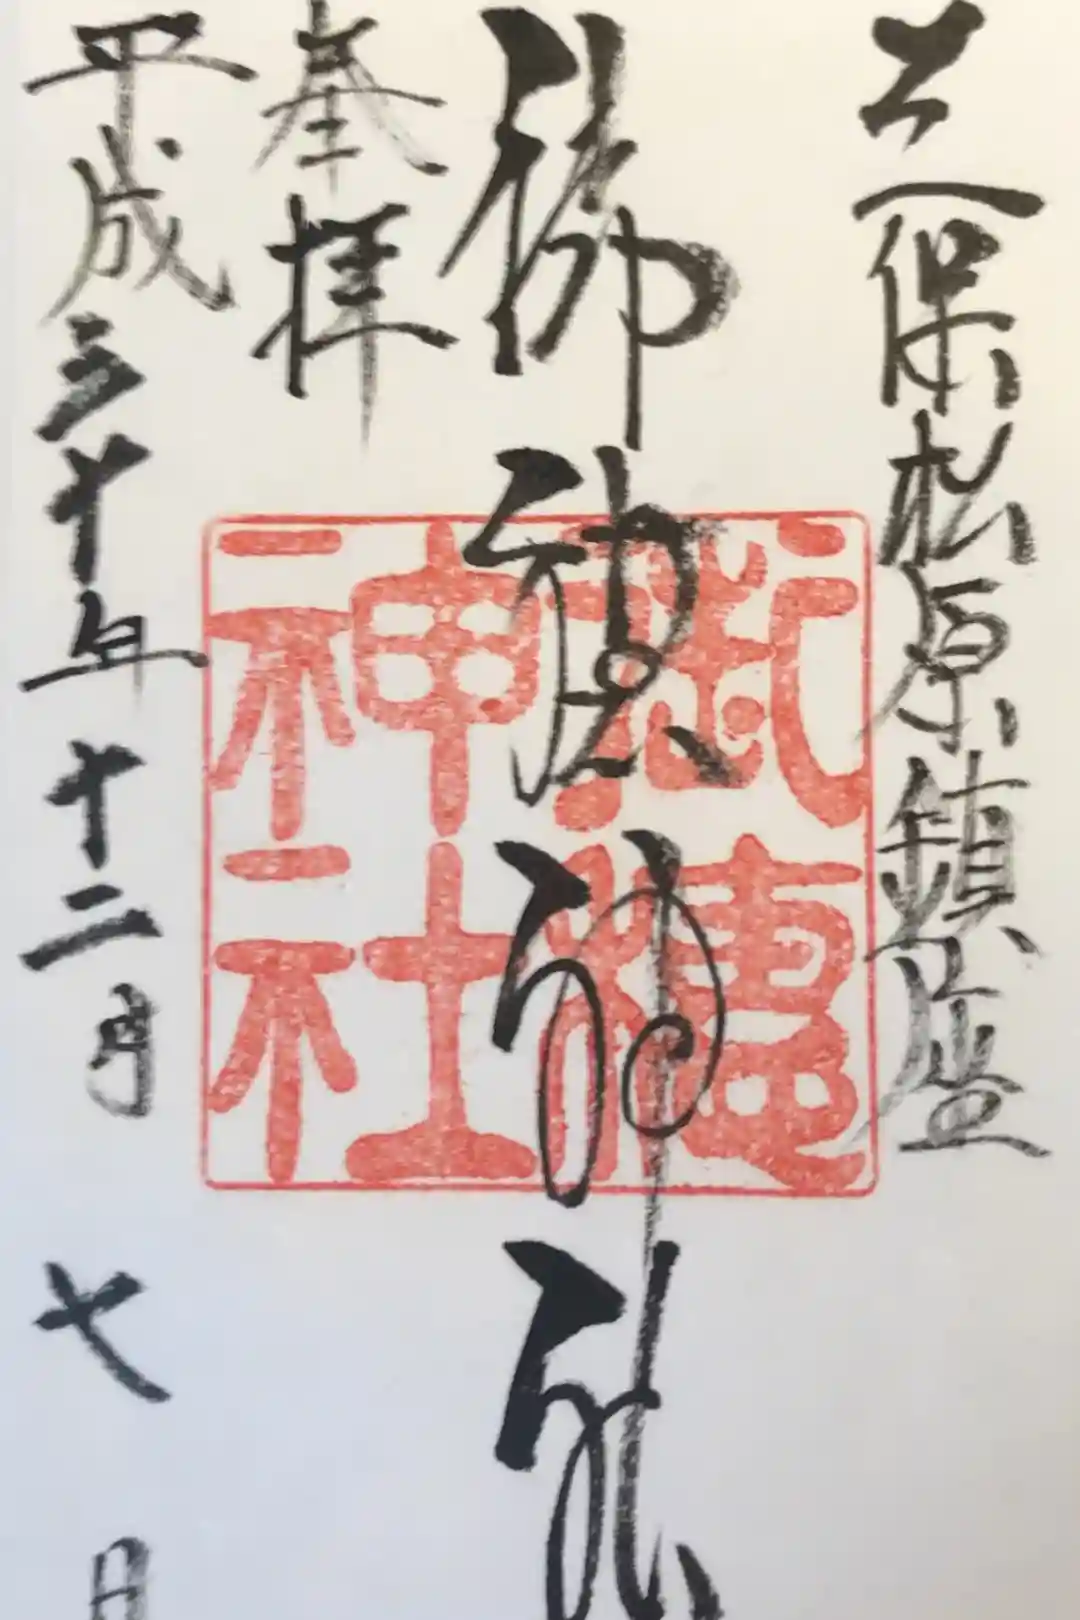 三保松原鎮座
御穂神社
奉拝
平成三十年十二月七日
神社